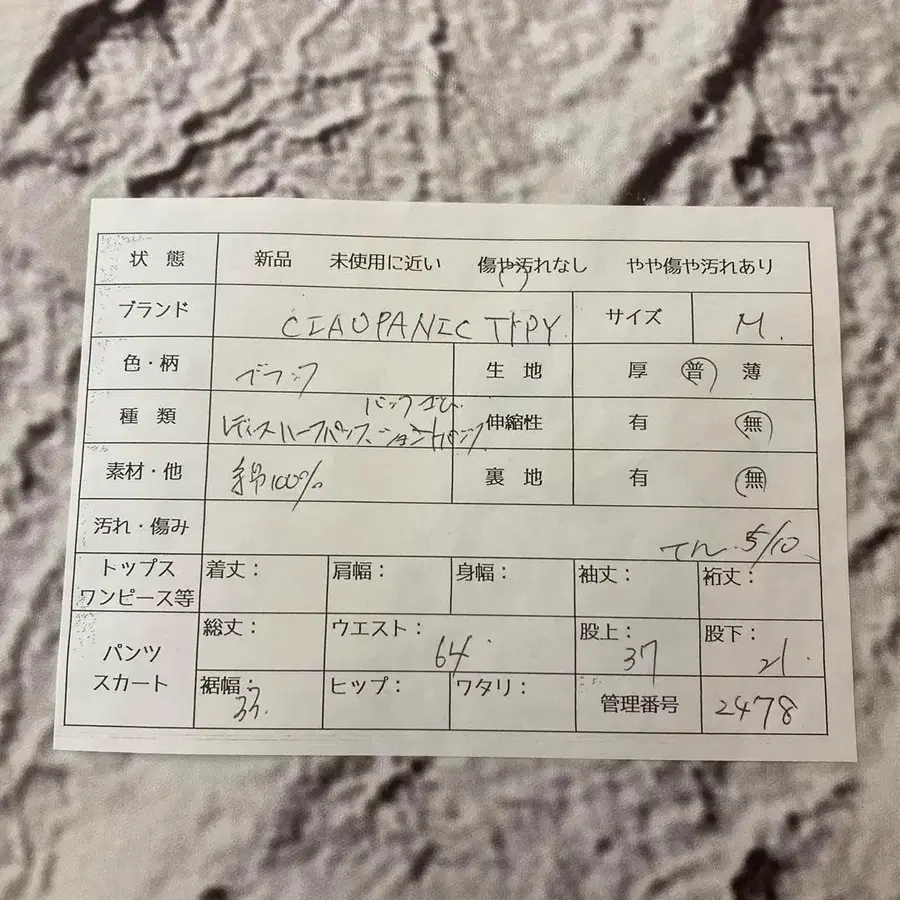 状 態 新品 未使用に近い 傷や汚れなし やや傷や汚れあり
ブランド CIAOPANIC TYPY サイズ M.
色・柄 ブラック 生 地 厚 普 薄
バックゴム
種 類 レディースハーフパンツ ショートパンツ 伸縮性 有 無
素材・他 綿100% 裏 地 有 無
汚れ・傷み 5/10
トップス ワンピース等 着丈: 肩幅: 身幅: 袖丈: 裄丈:
パンツ スカート 総丈: ウエスト: 64 股上: 37 股下: 21.
裾幅: 33. ヒップ: ワタリ: 管理番号 2478